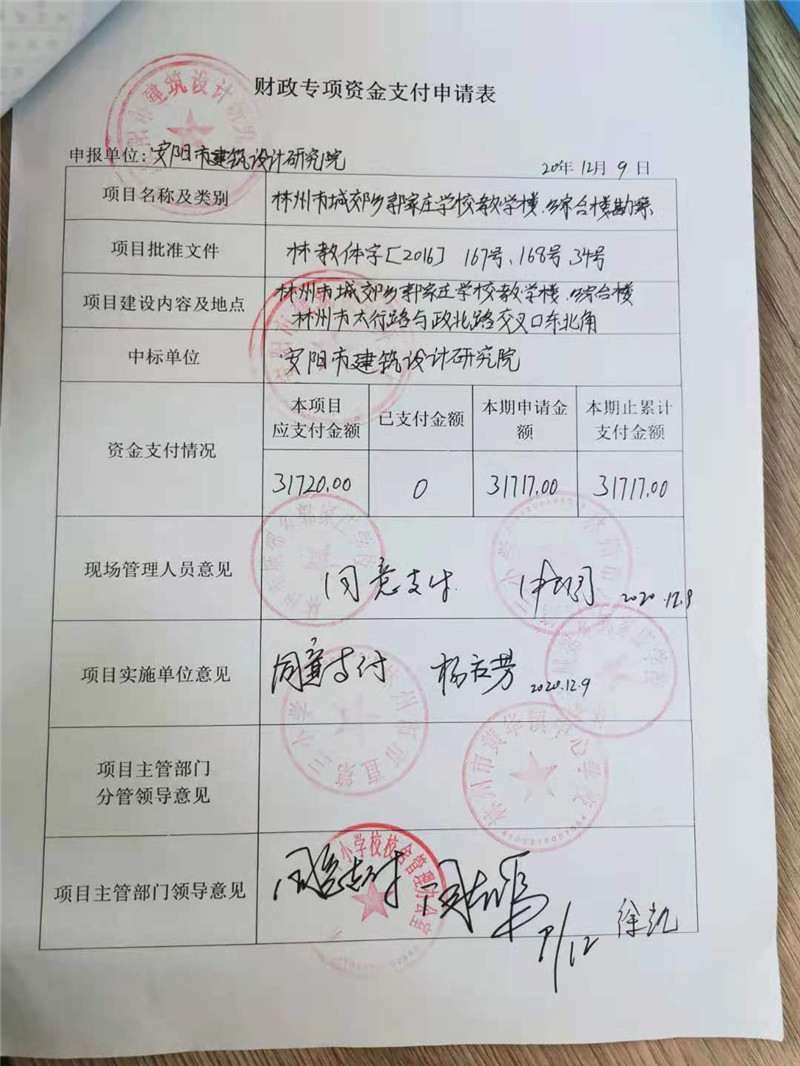 财政专项资金支付申请表
申报单位:安阳市建筑设计研究院 20年12月9日
项目名称及类别 林州市城郊乡郭家庄学校教学楼.综合楼勘察
项目批准文件 林教体字[2016] 167号、168号、34号
项目建设内容及地点 林州市城郊乡郭家庄学校教学楼.综合楼
林州市太行路与政北路交叉口东北角
中标单位 安阳市建筑设计研究院
资金支付情况
本项目
应支付金额
已支付金额
本期申请金
额
本期止累计
支付金额
31720.00 0 31717.00 31717.00
现场管理人员意见 同意支付 2020.12.9
项目实施单位意见 同意支付 2020.12.9
林州市黄华镇中心学校
项目主管部门
分管领导意见
项目主管部门领导意见 同意支付 9/12 徐凯
小学校校舍管理办公室